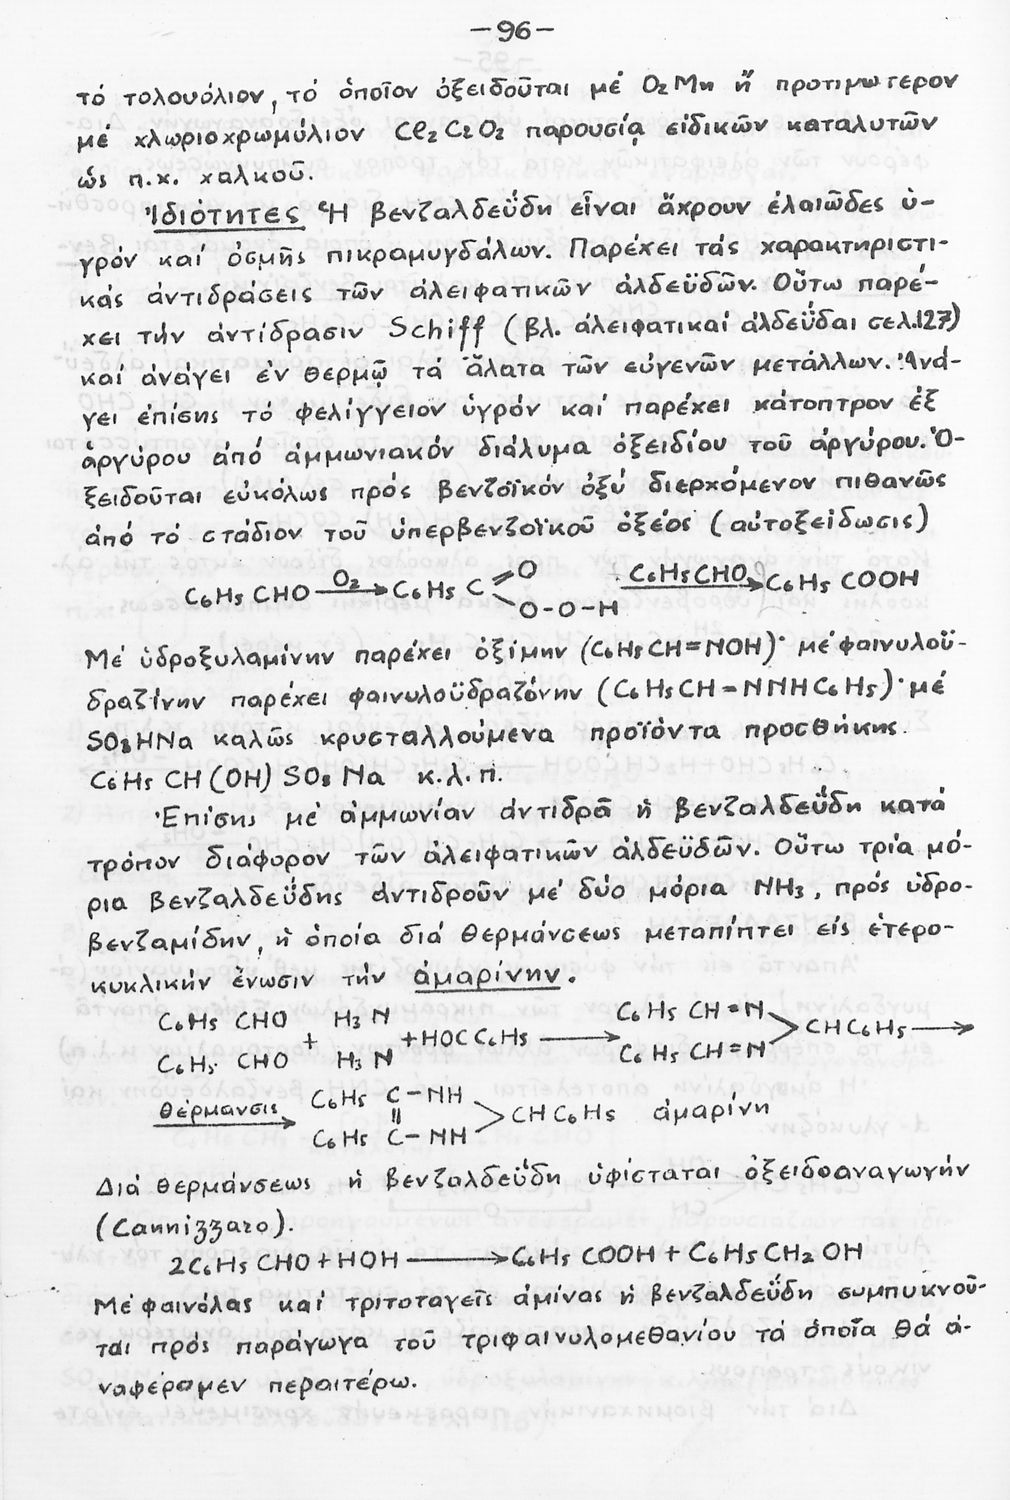 -96-
τό τολουόλιον, τό ὁποῖον ὀξειδοῦται μέ O2Mn ἤ προτιμώτερον
μέ χλωριοχρωμύλιον Cl2C2O2 παρουσίᾳ εἰδικῶν καταλυτῶν
ὡς π.χ. χαλκοῦ.
Ἰδιότητες Ἡ βενζαλδεΰδη εἶναι ἄχρουν ἐλαιῶδες ὑ-
γρόν καί ὀσμῆς πικραμυγδάλων. Παρέχει τάς χαρακτηριστι-
κάς ἀντιδράσεις τῶν ἀλειφατικῶν ἀλδεϋδῶν. Οὕτω παρέ-
χει τήν ἀντίδρασιν Schiff (βλ. ἀλειφατικαί ἀλδεΰδαι σελ.127)
καί ἀνάγει ἐν θερμῷ τά ἅλατα τῶν εὐγενῶν μετάλλων. Ἀνά-
γει ἐπίσης τό φελίγγειον ὑγρόν καί παρέχει κάτοπτρον ἐξ
ἀργύρου ἀπό ἀμμωνιακόν διάλυμα ὀξειδίου τοῦ ἀργύρου. Ὀ-
ξειδοῦται εὐκόλως πρός βενζοϊκόν ὀξύ διερχόμενον πιθανῶς
ἀπό τό στάδιον τοῦ ὑπερβενζοϊκοῦ ὀξέος (αὐτοξείδωσις)
C6H5CHO —O2→ C6H5 C =O
O-O-H
C6H5CHO → C6H5 COOH
Μέ ὑδροξυλαμίνην παρέχει ὀξίμην (C6H5CH=NOH)· μέ φαινυλοϋ-
δραζίνην παρέχει φαινυλοϋδραζόνην (C6H5CH=NNHC6H5)· μέ
SO3HNa καλῶς κρυσταλλούμενα προϊόντα προσθήκης.
C6H5 CH(OH) SO3 Na κ.λ.π.
Ἐπίσης μέ ἀμμωνίαν ἀντιδρᾶ ἡ βενζαλδεΰδη κατά
τρόπον διάφορον τῶν ἀλειφατικῶν ἀλδεϋδῶν. Οὕτω τρία μό-
ρια βενζαλδεΰδης ἀντιδροῦν μέ δύο μόρια NH3, πρός ὑδρο-
βενζαμίδην, ἡ ὁποία διά θερμάνσεως μεταπίπτει εἰς ἑτερο-
κυκλικήν ἕνωσιν τήν ἀμαρίνην.
C6H5 CHO H3N C6H5 CH=N
+ +HOCC6H5 → >CHC6H5 →
C6H5 CHO H3N C6H5 CH=N
θέρμανσις → C6H5 C-NH
|| >CHC6H5 ἀμαρίνη
C6H5 C-NH
Διά θερμάνσεως ἡ βενζαλδεΰδη ὑφίσταται ὀξειδοαναγωγήν
(Cannizzaro).
2C6H5 CHO+HOH → C6H5 COOH + C6H5CH2 OH
Μέ φαινόλας καί τριτοταγεῖς ἀμίνας ἡ βενζαλδεΰδη συμπυκνοῦ-
ται πρός παράγωγα τοῦ τριφαινυλομεθανίου τά ὁποῖα θά ἀ-
ναφέρομεν περαιτέρω.